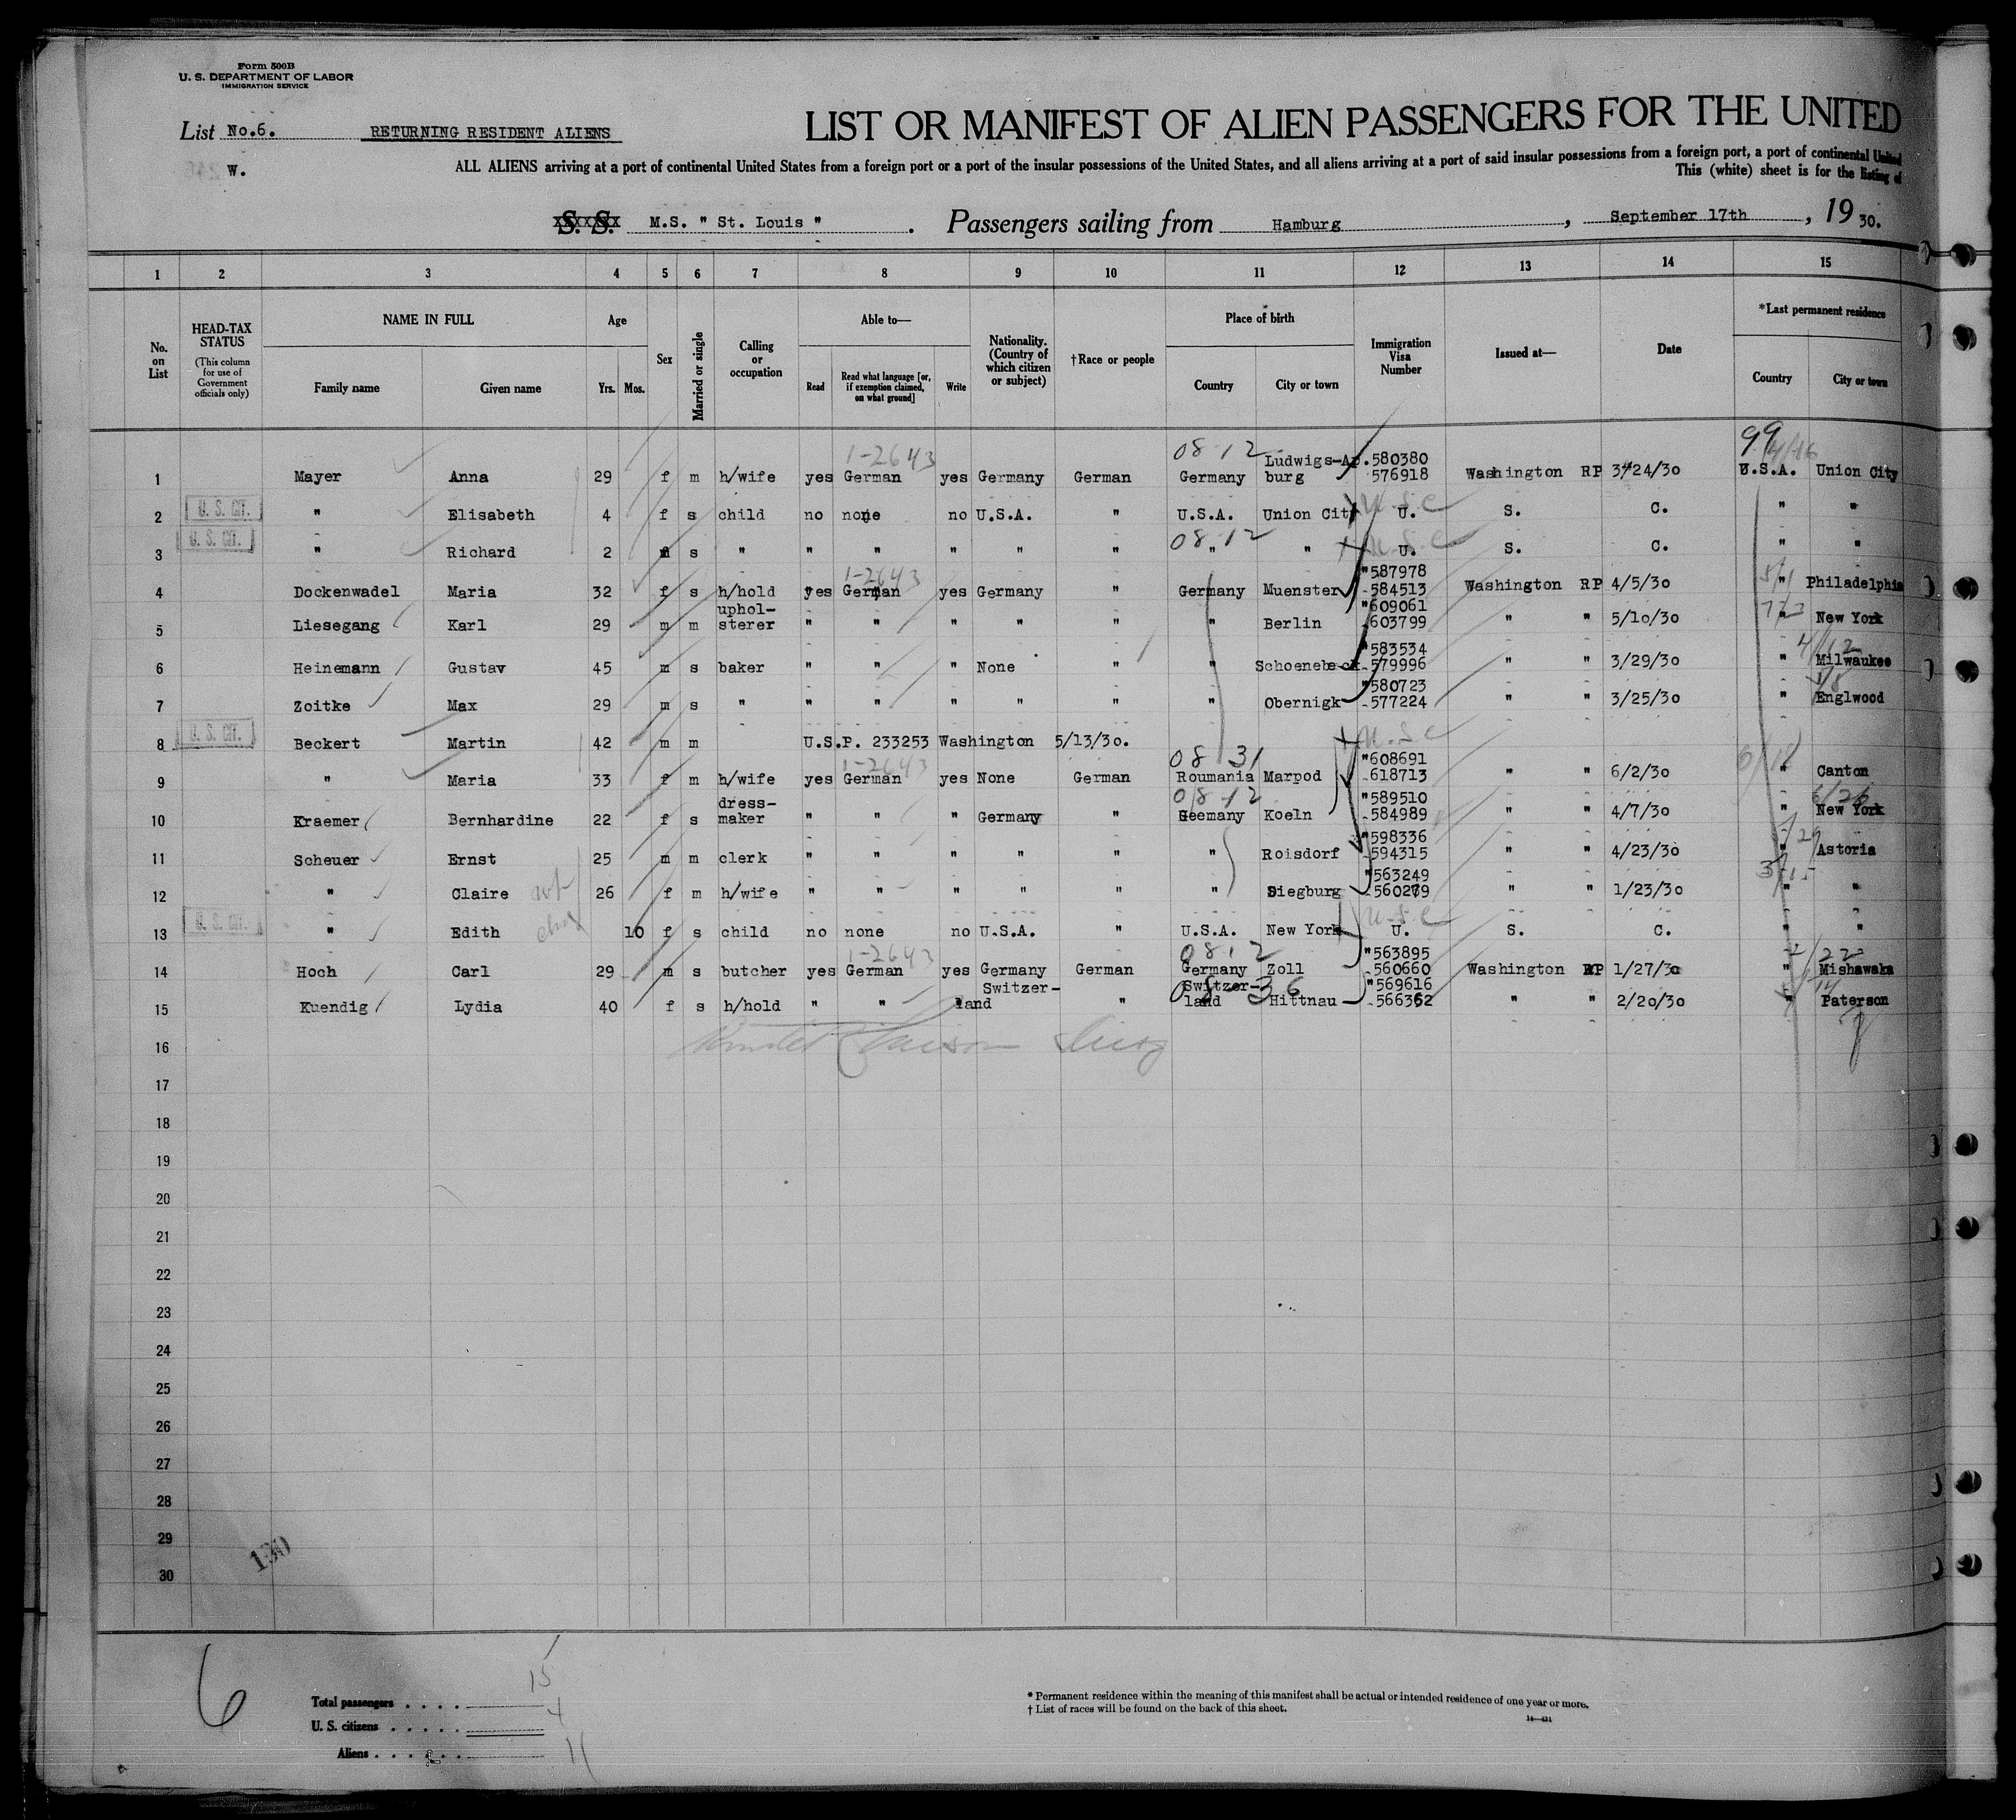 Form 500B
U. S. DEPARTMENT OF LABOR
IMMIGRATION SERVICE
List No.6. RETURNING RESIDENT ALIENS
W.
LIST OR MANIFEST OF ALIEN PASSENGERS FOR THE UNITED
ALL ALIENS arriving at a port of continental United States from a foreign port or a port of the insular possessions of the United States, and all aliens arriving at a port of said insular possessions from a foreign port, a port of continental United
This (white) sheet is for the listing of
S. S. M.S. " St. Louis " . Passengers sailing from Hamburg , September 17th , 19 30.
1 2 3 4 5 6 7 8 9 10 11 12 13 14 15
No. on List
HEAD-TAX STATUS (This column for use of Government officials only)
NAME IN FULL Family name Given name
Age Yrs. Mos.
Sex
Married or single
Calling or occupation
Able to— Read Read what language [or, if exemption claimed, on what ground] Write
Nationality. (Country of which citizen or subject)
†Race or people
Place of birth Country City or town
Immigration Visa Number
Issued at—
Date
*Last permanent residence Country City or town
1-2643 08-12 99 4/16
1 Mayer Anna 29 f m h/wife yes German yes Germany German Germany Ludwigs-burg 580380 576918 Washington RP 3/24/30 U.S.A. Union City
2 U. S. CIT. " Elisabeth 4 f s child no none no U.S.A. " U.S.A. Union City U. S. C. " "
U.S.C
3 U. S. CIT. " Richard 2 m s " " " " " " " " U. S. C. " "
08-12 U.S.C
1-2643
4 Dockenwadel Maria 32 f s h/hold yes German yes Germany " Germany Muenster "587978 -584513 Washington RP 4/5/30 " Philadelphia
5 Liesegang Karl 29 m m uphol-sterer " " " " " " Berlin "609061 -603799 " " 5/10/30 " New York
6 Heinemann Gustav 45 m s baker " " " None " " Schoenebeck "583534 -579996 " " 3/29/30 " Milwaukee
7 Zoitke Max 29 m s " " " " " " " Obernigk "580723 -577224 " " 3/25/30 " Englwood
8 U. S. CIT. Beckert Martin 42 m m U.S.P. 233253 Washington 5/13/30.
U.S.C
1-2643 08 31
9 " Maria 33 f m h/wife yes German yes None German Roumania Marpod "608691 -618713 " " 6/2/30 " Canton
08-12 6/26
10 Kraemer Bernhardine 22 f s dress-maker " " " Germany " Geemany Koeln "589510 -584989 " " 4/7/30 " New York
11 Scheuer Ernst 25 m m clerk " " " " " " Roisdorf "598336 -594315 " " 4/23/30 " Astoria
12 " Claire 26 f m h/wife " " " " " " Siegburg "563249 -560279 " " 1/23/30 " "
13 U. S. CIT. " Edith 10 f s child no none no U.S.A. " U.S.A. New York U. S. C. " "
U.S.C
1-2643 0812 2/22
14 Hoch Carl 29 m s butcher yes German yes Germany German Germany Zoll "563895 -560660 Washington RP 1/27/30 " Mishawaka
15 Kuendig Lydia 40 f s h/hold " " " Switzer-land " Switzer-land Hittnau "569616 -566352 " " 2/20/30 " Paterson
16
17
18
19
20
21
22
23
24
25
26
27
28
29
30
130
6
Total passengers . . . . . 15
U. S. citizens . . . . . 4
Aliens . . . . . 11
* Permanent residence within the meaning of this manifest shall be actual or intended residence of one year or more.
† List of races will be found on the back of this sheet.